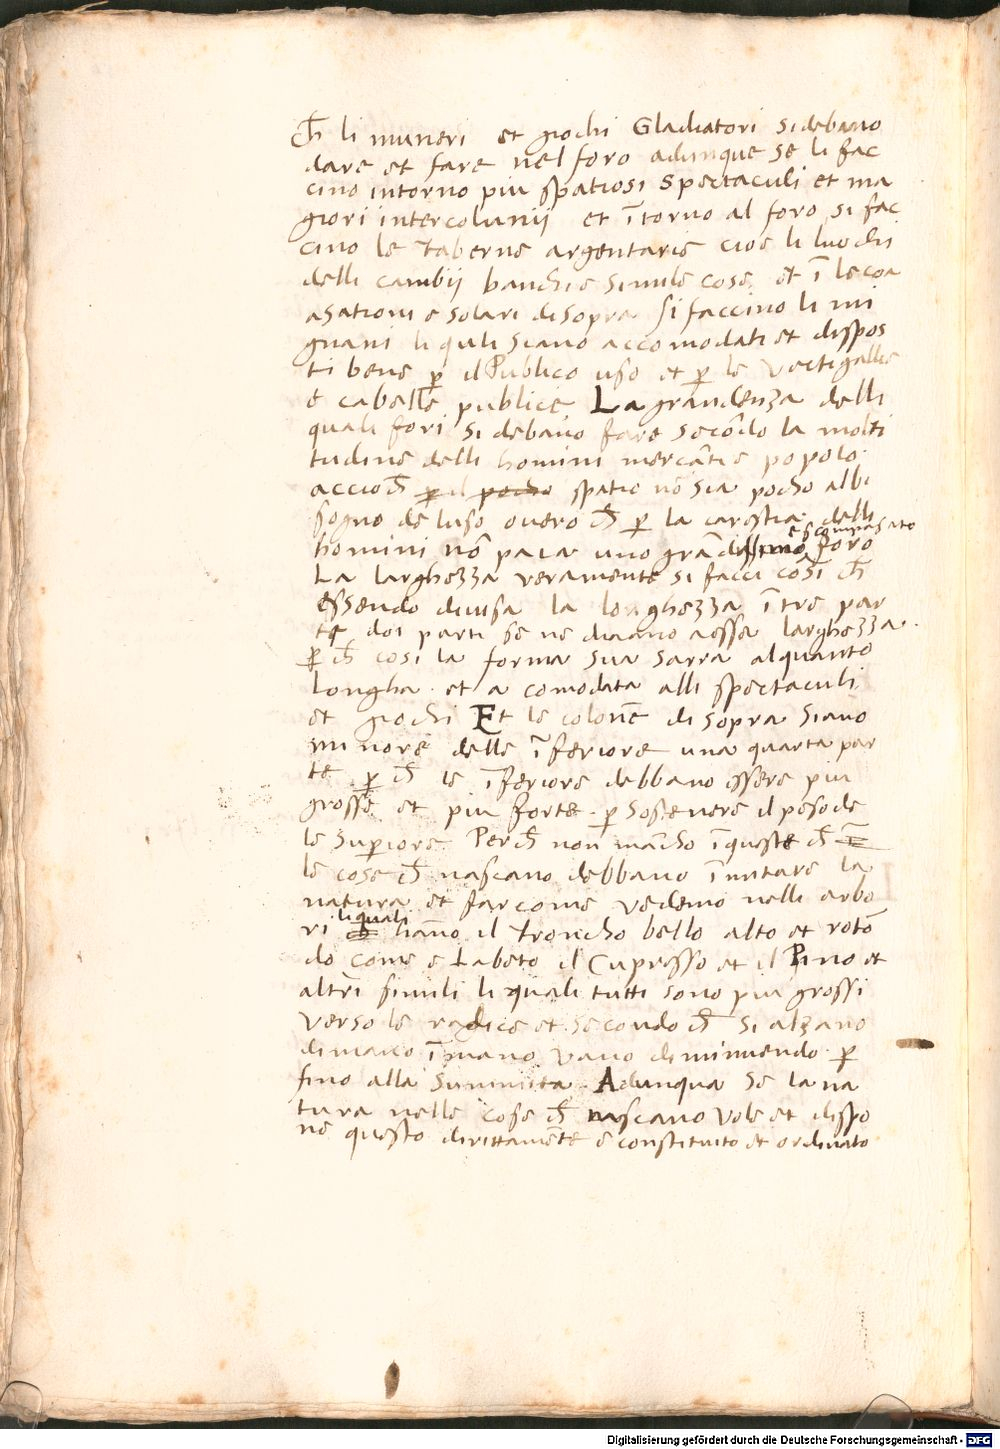 ch̄ li muneri et giochi Gladiatori si debano
dare et fare nel foro adunque se li fac
cino intorno piu spatiosi spectaculi et ma
giori intercolunij et ī torno al foro si fac
cino le taberne argentarie cioe li luochi
delli cambij banchi e simile cose et ī le coa
asationi e solari di sopra si faccino li mi
gnani li quli siano accomodati et dispos
ti bene p̱ il Publico uso et p̱ le vectigallie
e cabelle publice La grandenza delli
quali fori si debano fare secōdo la molti
tudine delli homini mercāti e popolo.
accioch̄ p̱ il pocho spatio nō sia pocho albi
sogno de luso overo ch̄ p̱ la carestia delli
homini nō paia uno grādissimo e scompasato foro
La larghezza veramente si facci cosi ch̄
essendo divisa la longhezza ī tre par
te doi parti se ne diano aessa larghezza.
p̱ ch̄ cosi la forma sua sarra alquanto
longha. et a comodata alli spectaculi
et giochi Et le colone di sopra siano
minore delle īferiore una quarta par
te p̱ ch̄ le īferiore debbano essere piu
grosse et piu forte. p̱ sostenere il peso de
le Sup̱iore Perch̄ non mācho ī queste ch̄
le cose ch̄ nascano debbano īmitare la
natura et far come vedemo nelli arbo
ri li quali hāno il troncho bello alto et rotō
do come e Labeto il Cupresso et il Pino et
altri simili li quali tutti sono piu grossi
verso le radice et secondo ch̄ si alzano
di mano ī mano vano diminuendo. p̱
fino alla summita. Adunqua se la na
tura nelle cose ch̄ nascano vole et dispo
ne questo dirittamēte e constituito et ordinato
Digitalisierung gefördert durch die Deutsche Forschungsgemeinschaft - DFG